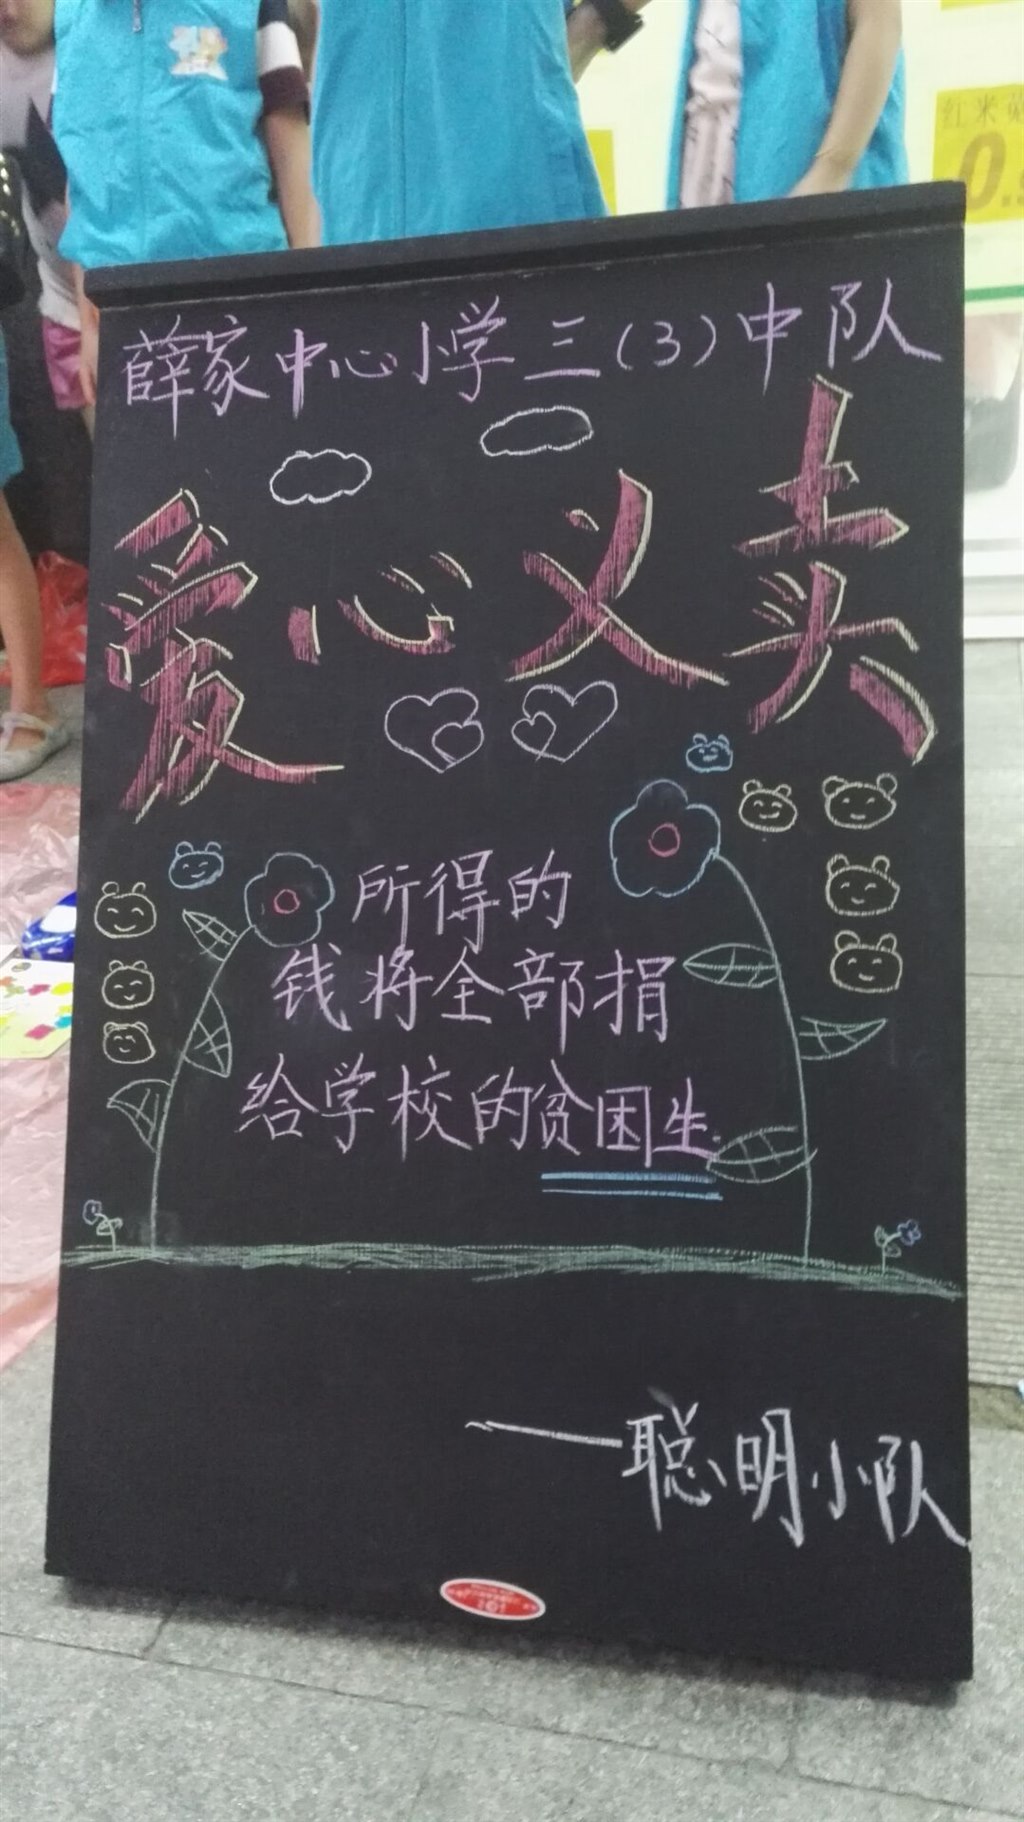 薛家中心小学三(3)中队
爱心义卖
所得的
钱将全部捐
给学校的贫困生.
——聪明小队
红米
0.